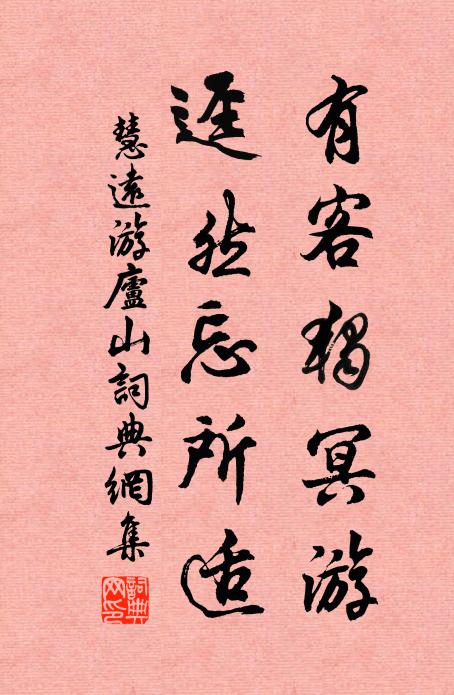 有客獨冥游
逕然忘所适
慧遠游廬山詞典網集
詞典網印